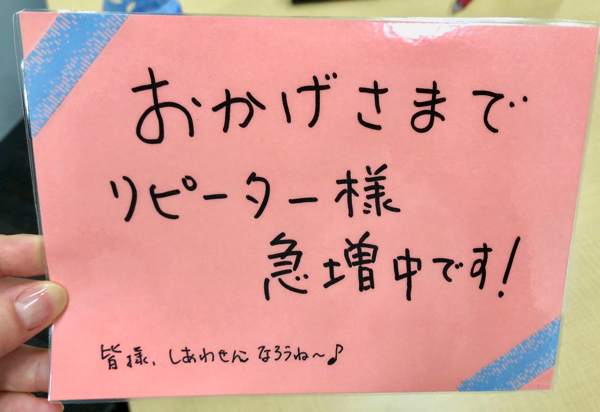 おかげさまで
リピーター様
急増中です!
皆様、しあわせんなろうね〜♪